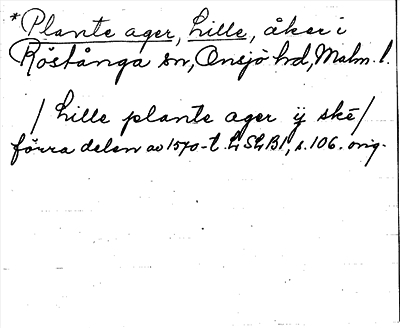 *Plante ager, Lille, åker i
Röstånga sn, Onsjö hd, Malm. l.
/ Lille plante ager ÿ skē /
förra delen av 1570-t. LSLB1, s. 106. orig.